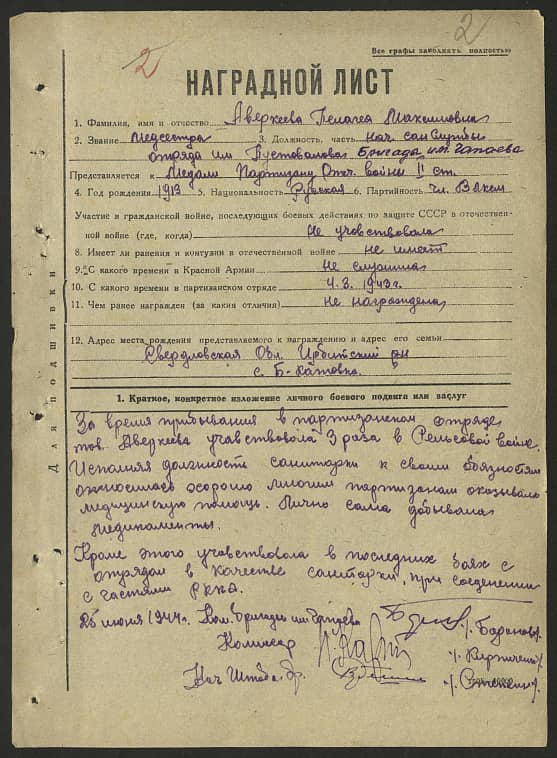 2
2
Все графы заполнять полностью
НАГРАДНОЙ ЛИСТ
1. Фамилия, имя и отчество Аверкеева Пелагея Максимовна
2. Звание Медсестра 3. Должность, часть нач. сан службы
отряда им Пустовалова бригада им. Чапаева
Представляется к Медали Партизану Отч. войны II ст.
4. Год рождения 1913 5. Национальность Русская 6. Партийность чл. ВЛКСМ
Участие в гражданской войне, последующих боевых действиях по защите СССР в отечествен-
ной войне (где, когда) Не учавствовала
8. Имеет ли ранения и контузии в отечественной войне не имеет
9. С какого времени в Красной Армии Не служила
10. С какого времени в партизанском отряде 4.3.1943г.
11. Чем ранее награжден (за какия отличия) Не награждена
12. Адрес места рождения представляемого к награждению и адрес его семьи
Свердловская Обл. Ирбитский рн
с. Б-Кочовка.
Для подшивки
1. Краткое, конкретное изложение личного боевого подвига или заслуг
За время прибывания в партизанском отряде
тов. Аверкеева учавствовала 3 раза в Рельсовой войне.
Исполняя должность санитарки к своим обязностям
относилась хорошо многим партизанам оказывала
медицинскую помощь. Лично сама добывала
медикаменты.
Кроме этого учавствовала в последних боях с
отрядом в качестве санитарки, при соеденении
с частями РККА.
25 июня 1944г. Ком. бригады им. Чапаева /Баранов/
Комиссар /Кирпичев/
Нач Штаба бр. /Степенин/